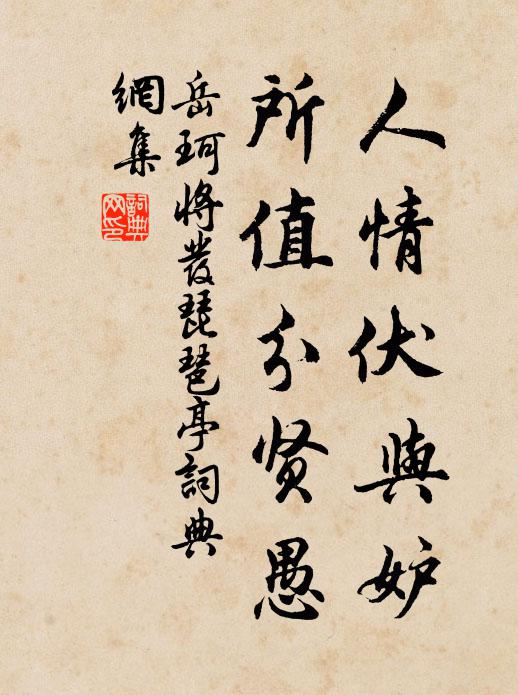 人情伏與妒
所值分贤愚
岳珂將發琵琶亭詞典
網集
詞典
网印